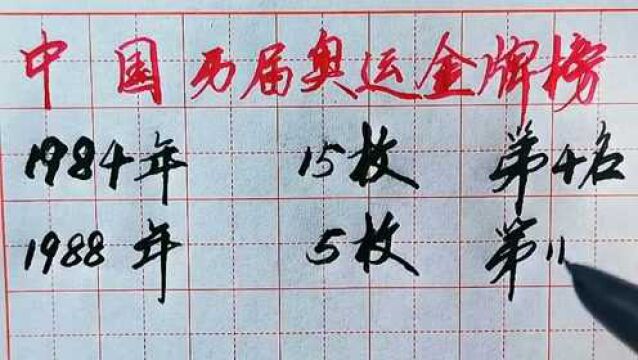 中国历届奥运金牌榜
1984年 15枚 第4名
1988年 5枚 第11